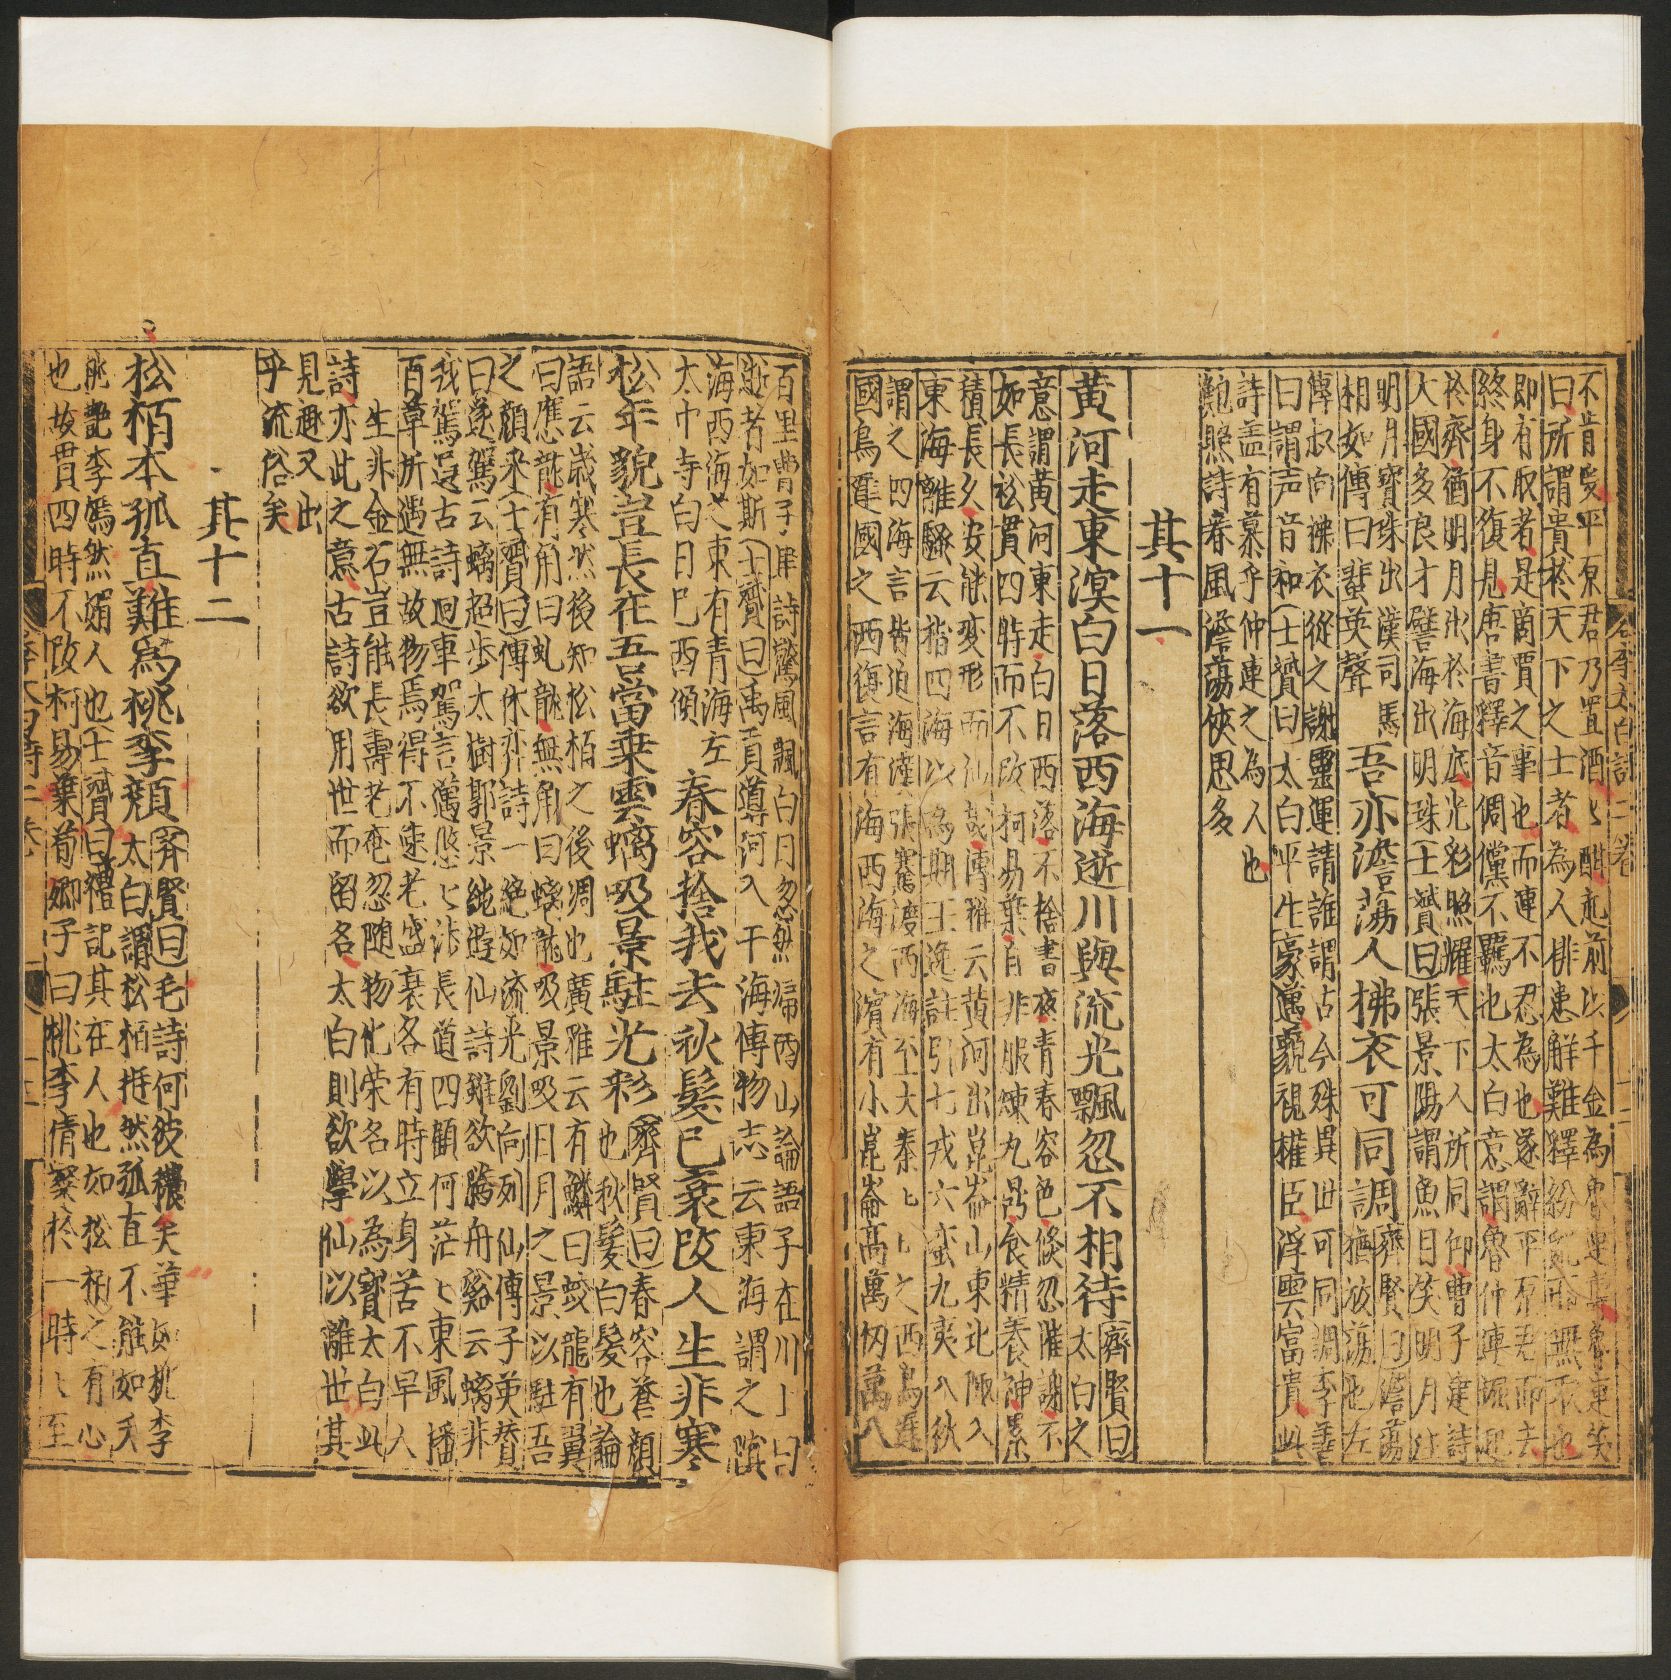 不肯受平原君乃置酒酒酣起前以千金為魯連壽魯連笑
曰所謂貴於天下之士者為人排患解難釋紛亂而無取也
即有取者是商賈之事也而連不忍為也遂辭平原君而去
終身不復見唐書釋音倜儻不羈也太白意謂魯仲連崛起
於齊猶明月出於海底光彩照耀天下人所同仰曹子建詩
大國多良才譬海出明珠士贇曰張景陽謂魚目笑明月注
明月寶珠出漢司馬
相如傳曰蜚英聲
吾亦澹蕩人拂衣可同調
齊賢曰澹蕩
猶放蕩也左
傳叔向拂衣從之謝靈運詩誰謂古今殊異世可同調李善
曰謂声音和士贇曰太白平生豪邁藐視權臣浮雲富貴此
詩盖有慕乎仲連之為人也
鮑照詩春風澹蕩俠思多
其十一
黃河走東溟白日落西海逝川與流光飄忽不相待
齊賢曰
太白之
意謂黃河東走白日西落不捨晝夜青春容色倏忽凋謝不
如長松貫四時而不改柯易葉自非服煉九鼎食精養神累
積長久安能变形而仙哉傳雅云黃河出崑崙山東北陬入
東海離騷云指四海以為期王逸註引七戎六蠻九夷八狄
謂之四海言皆近海漢張騫渡西海至大秦大秦之西烏遲
國烏遲國之西復言有海西海之濱有小崑崙高萬仞萬八
百里曹子建詩驚風飄白日忽然歸西山論語子在川上曰
逝者如斯士贇曰禹貢導河入于海傳物志云東海謂之溟
海西海之東有青海左
太冲寺白日巳西傾
春容捨我去秋髮巳衰改人生非寒
松年貌豈長在吾當乗雲螭吸景駐光彩
齊賢曰春容蒼顏
也秋髮白髮也論
語云歲寒然後知松柏之後凋也廣雅云有鱗曰蛟龍有翼
曰應龍有角曰虬龍無角曰螭龍吸景吸日月之景以駐吾
之顏釆士贇曰傅休弈詩一絶如流光劉向列仙傳子英贊
曰遂駕云螭超歩太樹郭景純遊仙詩雖欲騰丹谿云螭非
我駕是古詩迴車駕言邁悠悠涉長道四顧何茫茫東風搖
百草所遇無故物焉得不速老盛衰各有時立身苦不早人
生非金石豈能長壽老奄忽随物化荣名以為寳太白此
詩亦此之意古詩欲用世而留名太白則欲學仙以離世其
見趣又出
乎流俗矣
其十二
松栢本孤直難爲桃李顏
齊賢曰毛詩何彼穠矣華如桃李
太白謂松栢挺然孤直不能如夭
桃艷李嫣然媚人也士贇曰禮記其在人也如松栢之有心
也故貫四時不改柯易葉荀卿子曰桃李倩粲於一時時至